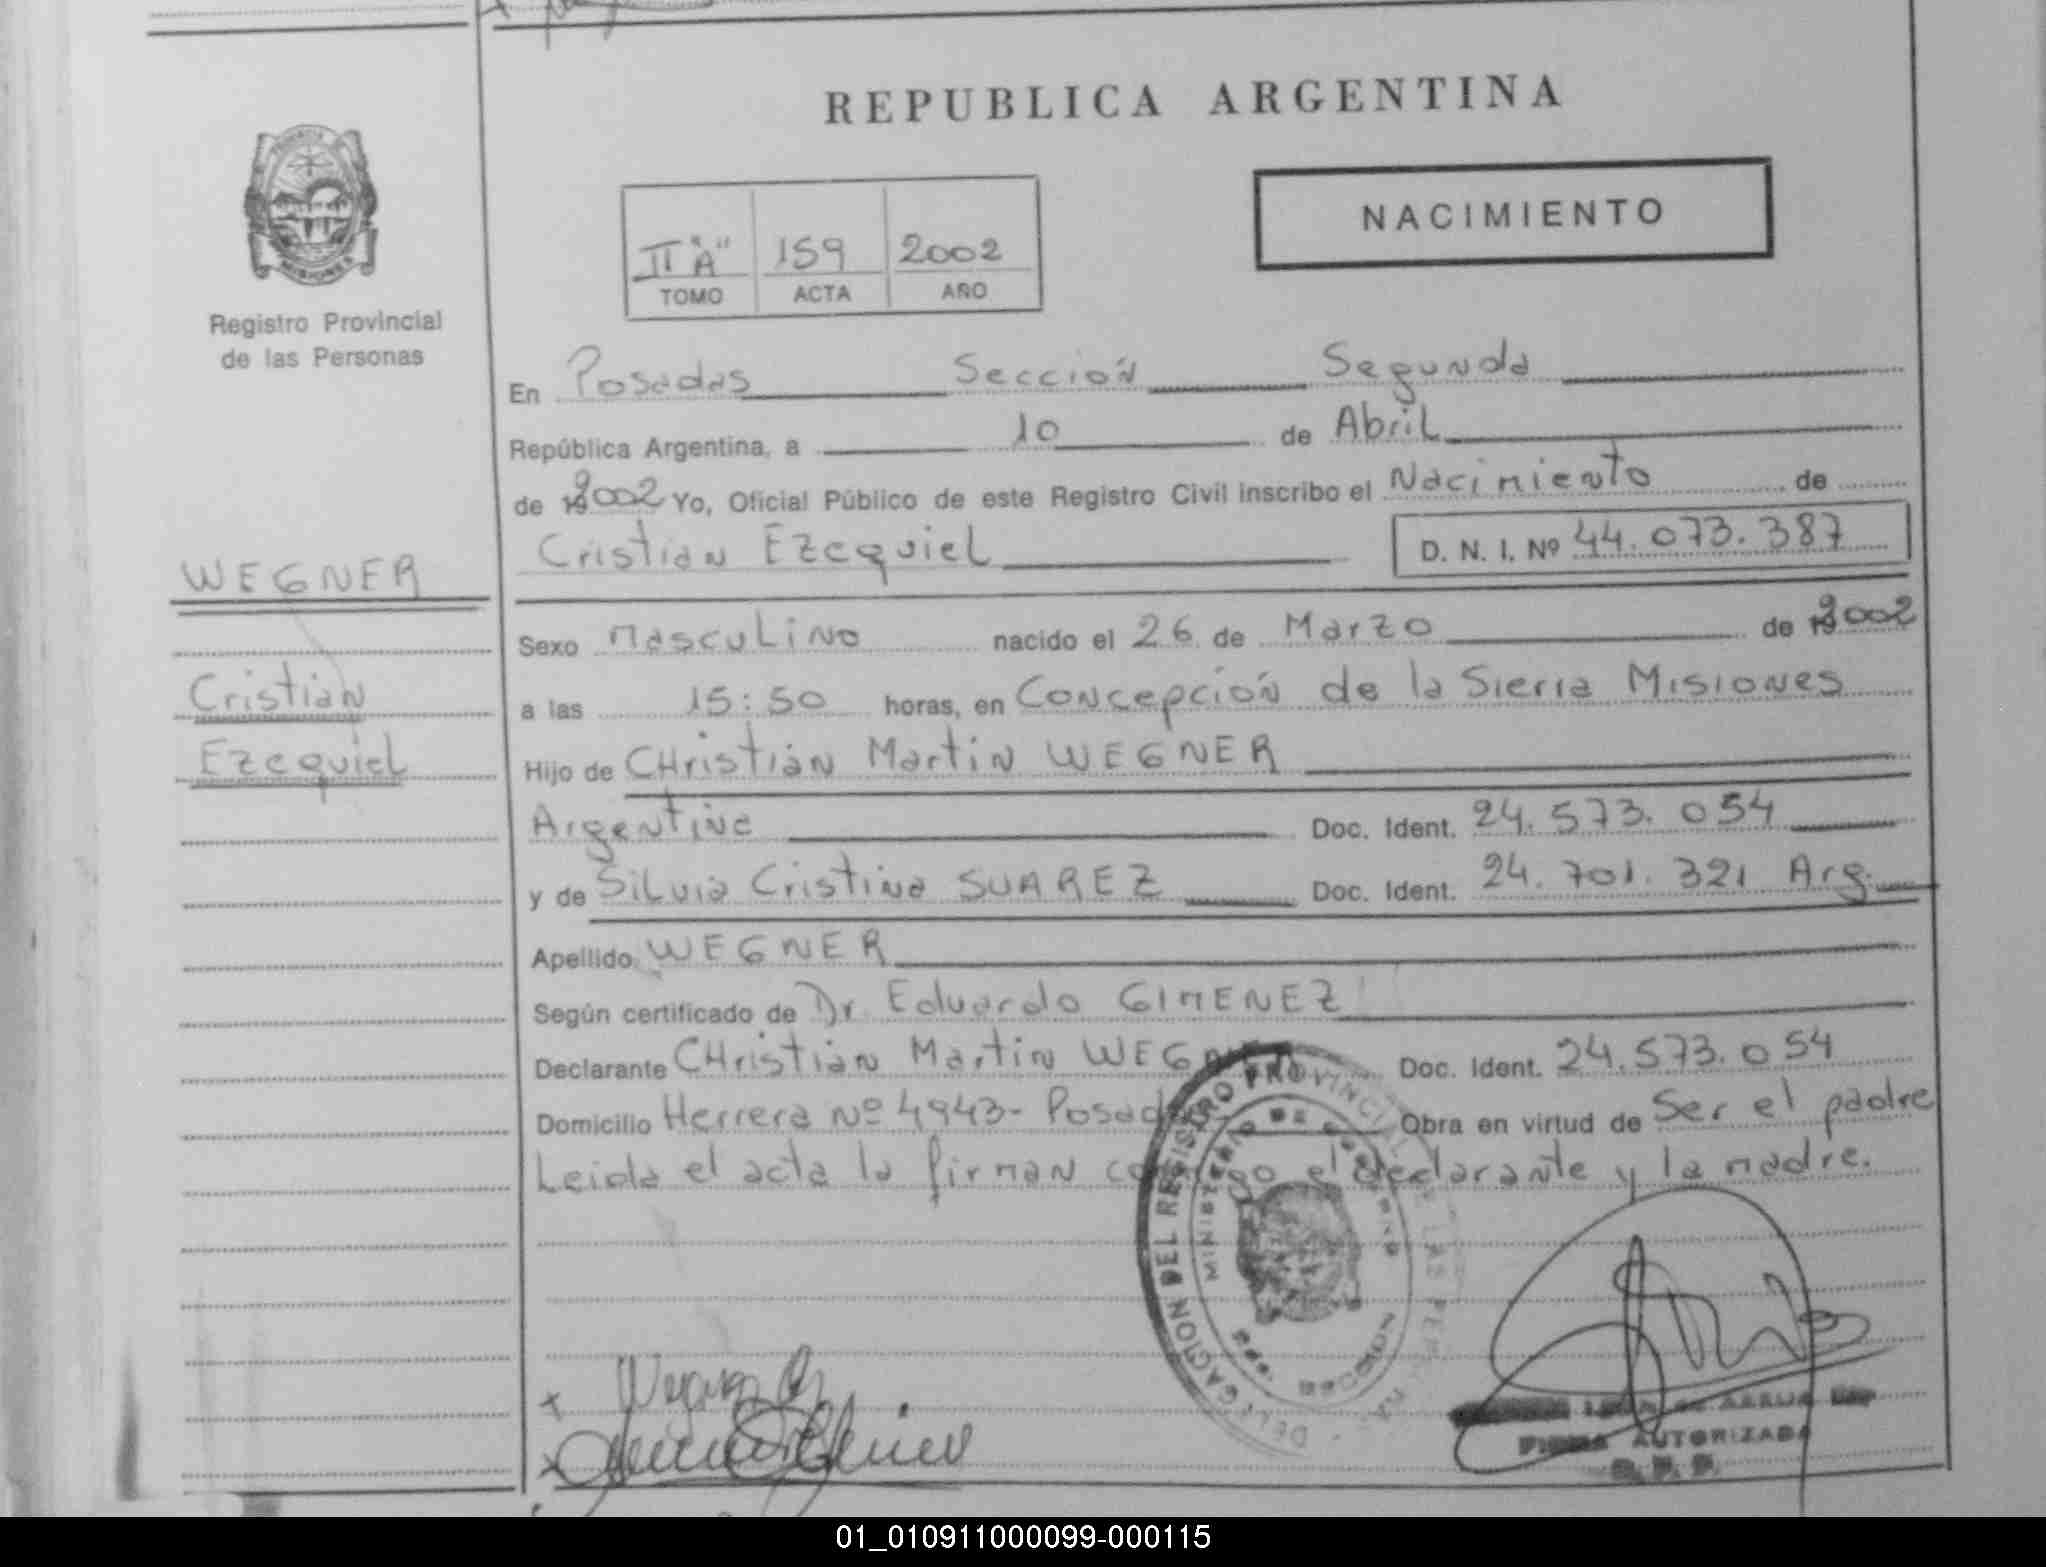 REPUBLICA ARGENTINA
NACIMIENTO
II "A" 159 2002
TOMO ACTA AÑO
PROVINCIA DE MISIONES
Registro Provincial
de las Personas
En Posadas Sección Segunda
República Argentina, a 10 de Abril
de 2002 Yo, Oficial Público de este Registro Civil inscribo el Nacimiento de
Cristian Ezequiel D. N. I. Nº 44.073.387
WEGNER
Cristian
Ezequiel
Sexo Masculino nacido el 26 de Marzo de 2002
a las 15:50 horas, en Concepción de la Sierra Misiones
Hijo de CHristian Martin WEGNER
Argentino Doc. Ident. 24.573.054
y de Silvia Cristina SUAREZ Doc. Ident. 24.701.321 Arg.
Apellido WEGNER
Según certificado de Dr. Eduardo GIMENEZ
Declarante CHristian Martin WEGNER Doc. Ident. 24.573.054
Domicilio Herrera Nº 4943- Posadas Obra en virtud de Ser el padre
Leida el acta la firman conmigo el declarante y la madre.
DELEGACION DEL REGISTRO PROVINCIAL DE LAS PERSONAS
MINISTERIO DE GOBIERNO
FIRMA AUTORIZADA
01_010911000099-000115